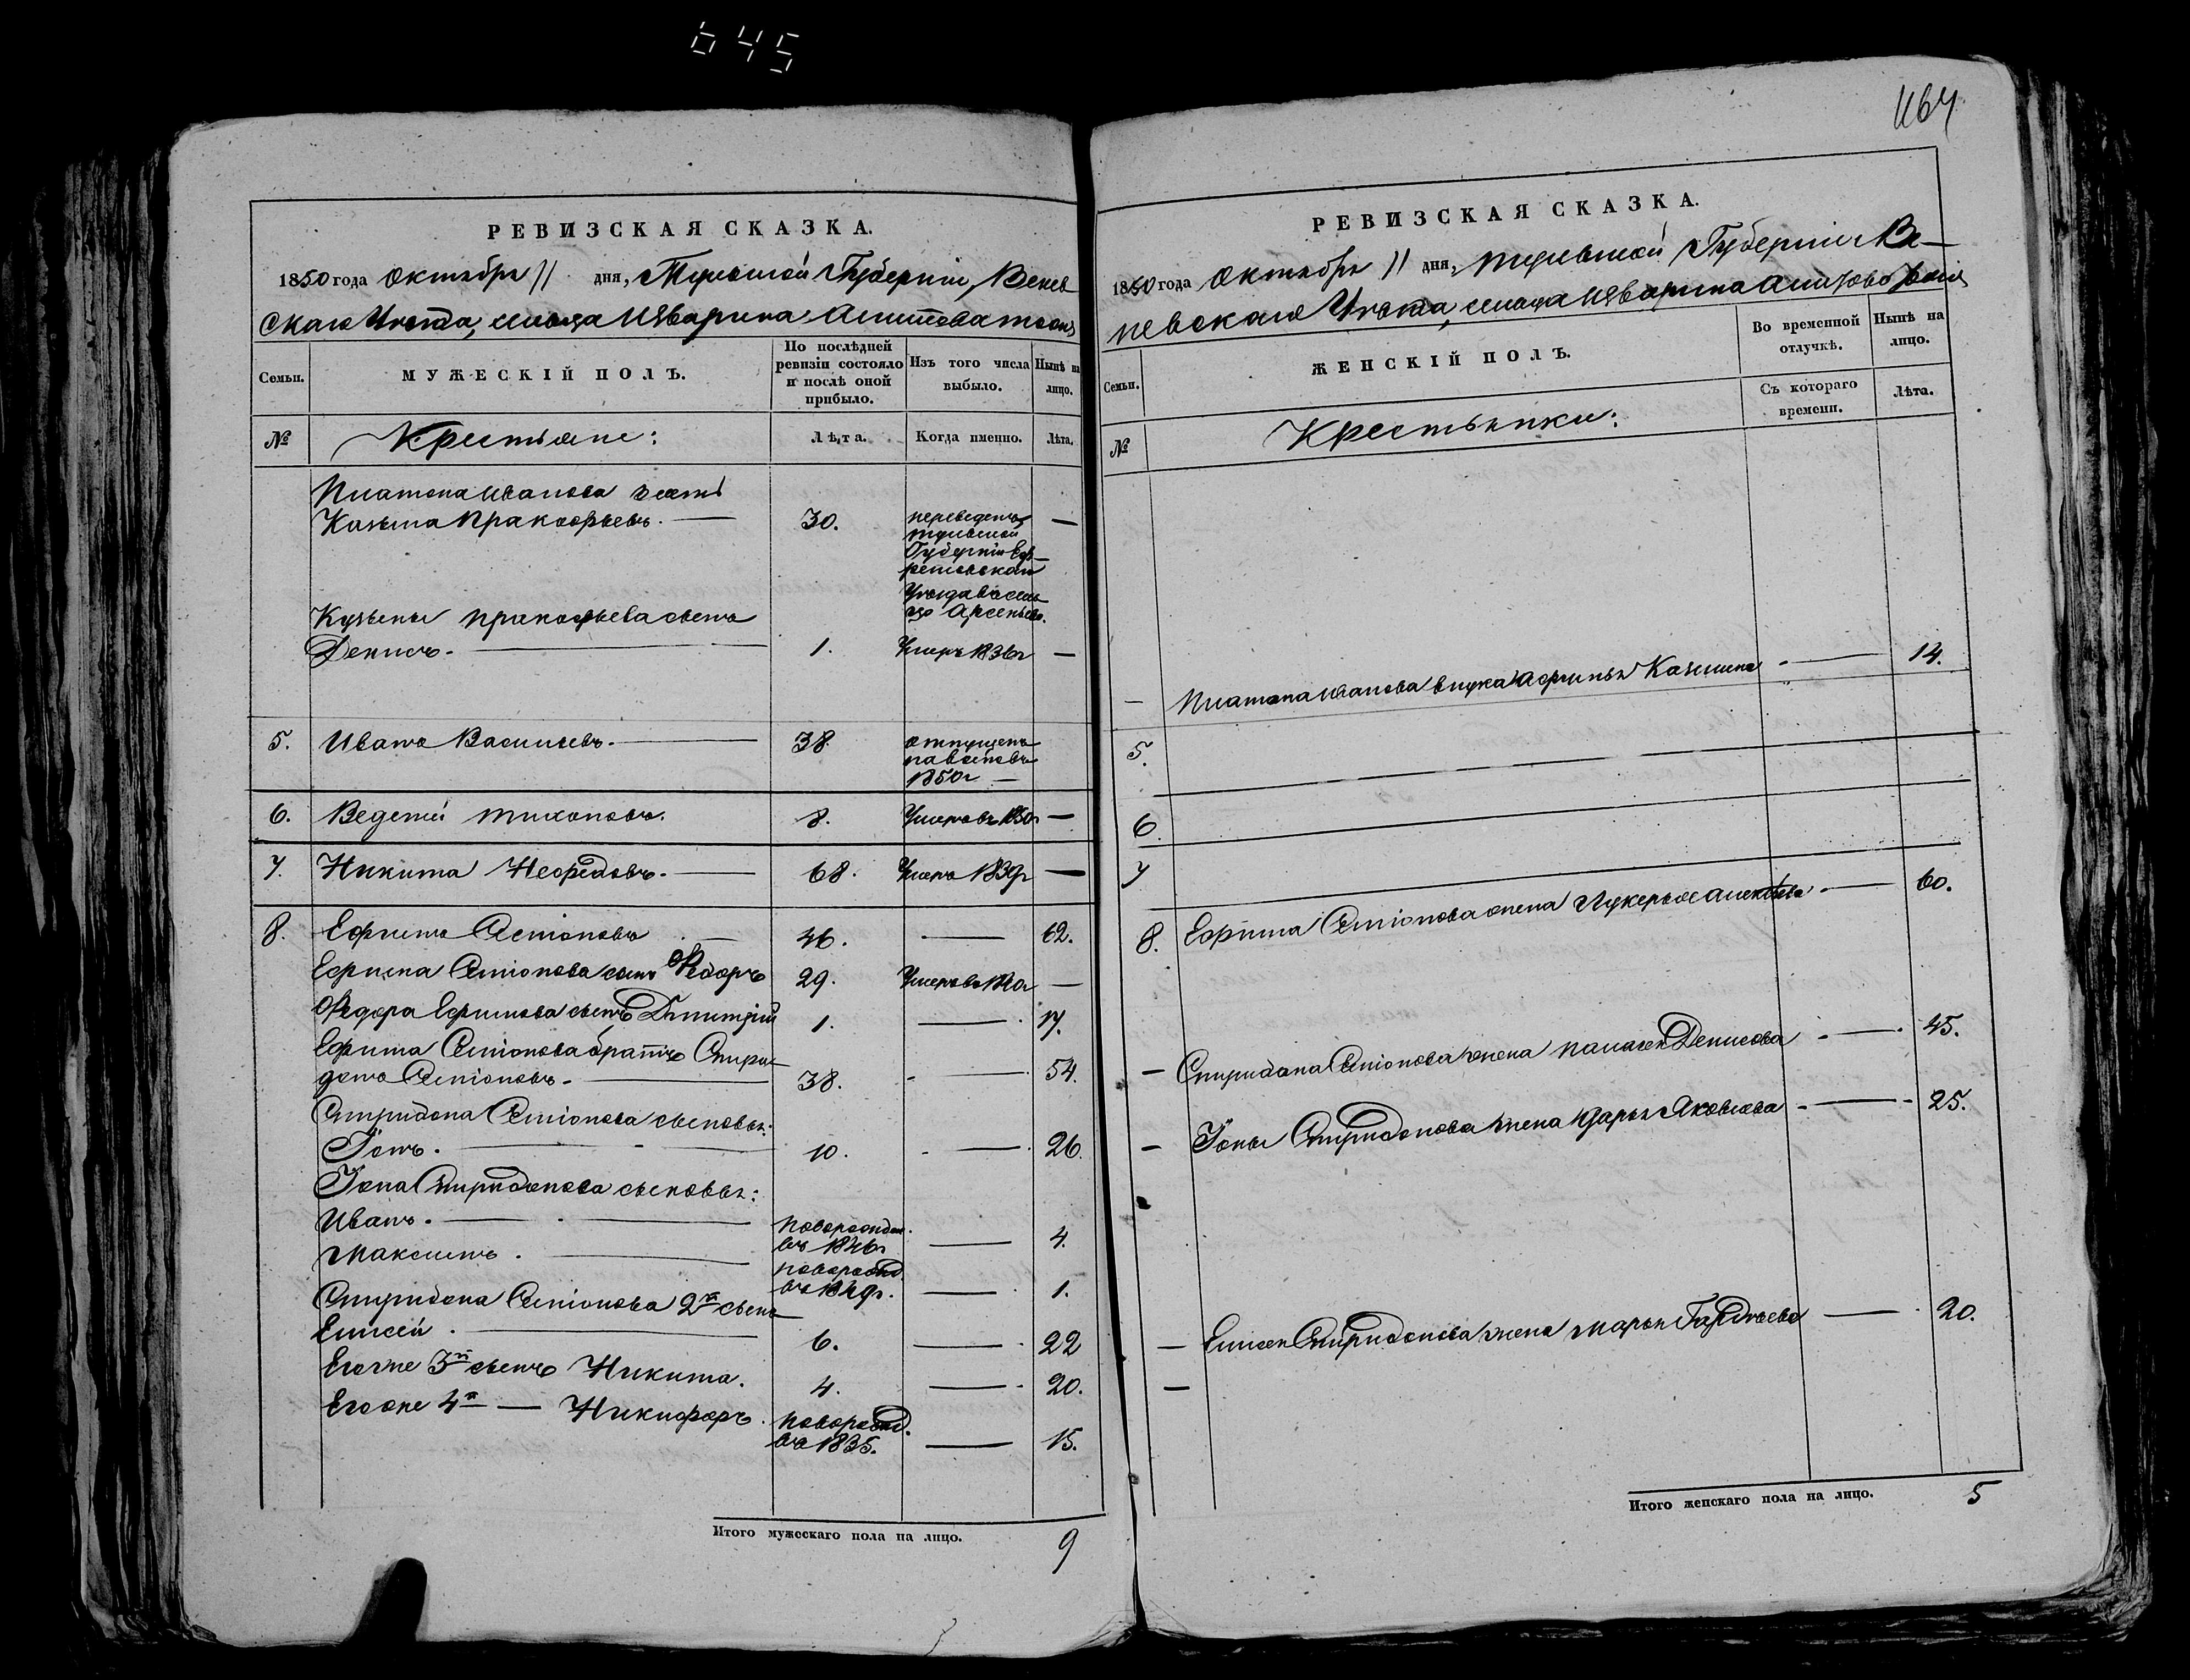 645
464
РЕВИЗСКАЯ СКАЗКА.
1850 года Октября 11 дня, Тульской Губерніи, Венев
скаго Уезда, сельца Изварина
Семьи.
МУЖЕСКІЙ ПОЛЪ.
По послѣдней ревизіи состояло и послѣ оной прибыло.
Изъ того числа выбыло.
Нынѣ на лицо.
№
Крестьяне:
Лѣта.
Когда именно.
Лѣта.
Платона Иванова зеать
Казьма Пракофьевъ. — 30. переведенъ
Тульской
Губерніи Еф-
ремовскаго
Уезда в сель-
цо Арсеньево. —
Кузьмы Пракофьева сынъ
Денисъ. — 1. Умеръ 1836г —
5. Иванъ Васильевъ. — 38. отпущенъ
на волю въ
1850г —
6. Ведений Тихоновъ. 8. Умеръ въ 1850г —
7. Никита Нефедовъ. — 68. Умеръ 1839г —
8. Ефимъ Семіоновъ — 46. — 62.
Ефима Семіонова сынъ Федоръ 29. Умеръ въ 1840г —
Федора Ефимова сынъ Дмитрій 1. — 17.
Ефима Семіонова братъ Спири-
донъ Семіоновъ. — 38. — 54.
Спиридона Семіонова сыновья:
Іонъ. — 10. — 26.
Іона Спиридонова сыновья:
Иванъ. — новорожден.
въ 1846г — 4.
Максимъ. — новорожд.
въ 1849г. — 1.
Спиридона Семіонова 2й сынъ
Елисей. — 6. — 22
Его же 3й сынъ Никита. 4. — 20.
Его же 4й — Никифоръ. новорожд.
въ 1835. — 15.
Итого мужескаго пола на лицо. 9
РЕВИЗСКАЯ СКАЗКА.
1850 года Октября 11 дня, Тульской Губерніи Ве-
невскаго Уезда, сельца Изварина
Семьи.
ЖЕНСКІЙ ПОЛЪ.
Во временной отлучкѣ.
Нынѣ на лицо.
Съ котораго времени.
Лѣта.
№
Крестьянки:
— Платона Иванова внука Афимья Казьмина — 14.
5.
6.
7
8. Ефима Семіонова жена Лукерья Алексѣева — 60.
— Спиридона Семіонова жена Палагея Денисова — 45.
— Іоны Спиридонова жена Дарья Яковлева — 25.
— Елисея Спиридонова жена Марья Гардѣева — 20.
—
Итого женскаго пола на лицо. 5